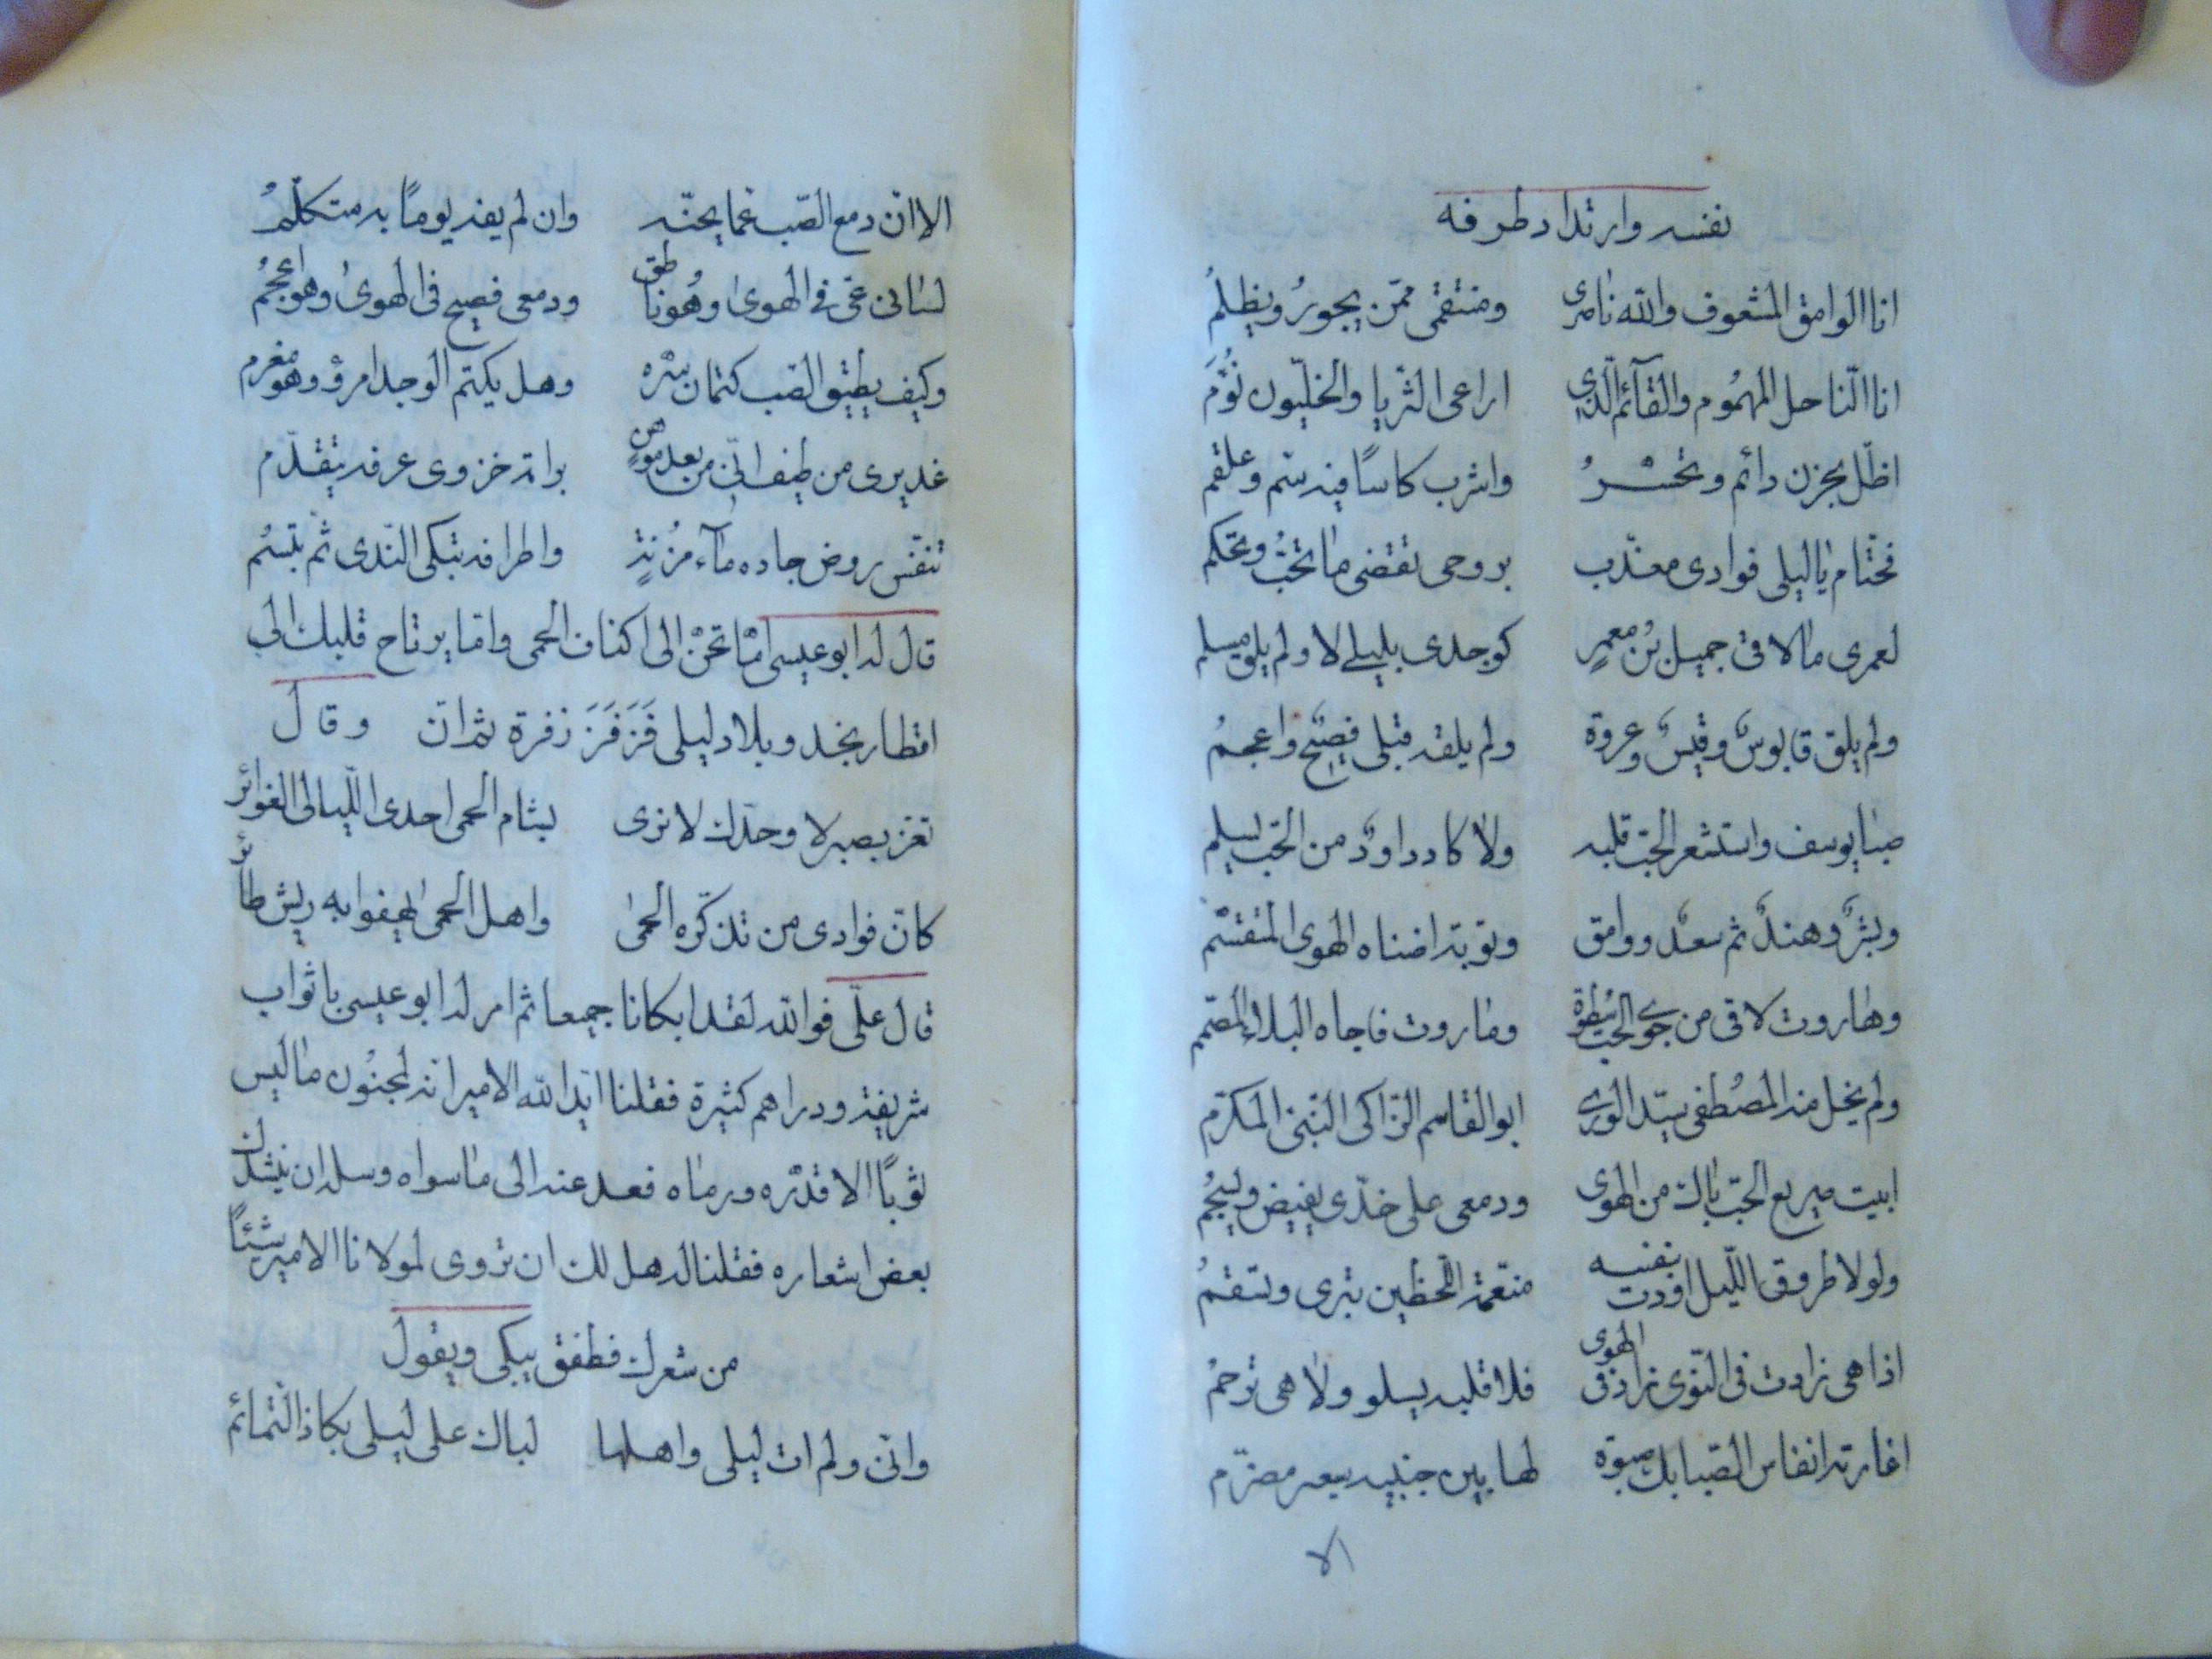 نفسه وارتداد طرفه
انا الوامق المشعوف والله ناصري ومنتقمي ممّن يجورُ ويظلمُ
انا النّاحل المهمُوم والقآئم الّذي اراعى الثريا والخليّون نُوَّمُ
اظلّ بحزن دائم وتحسّرُ واشرب كاسًا فيه سم وعلقم
فحتّام يا ليلى فوادى معذّب بروحى تقضى ما تحبّ وتحكم
لعمرى ما لاقى جميل بُن معمرٍ كوجدى بليلى لا ولم يلق مسلم
ولم يلق قابوسٌ وقيسٌ وعروة ولم يلقه قبلى فصيح واعجمُ
صبا يوسف واستشعر الحبّ قلبه ولا كاد داودٌ من الحبّ يسلم
وبشرٌ وهندٌ ثم سعدٌ ووامق وتوبة اضناه الهوى المتقسّم
وهاروت لاقى من جوى الحبّ سطوة وماروت فاجاه البلاء المصمّم
ولم يخل منه المصُطفى سيّد الورى ابو القاسم الزّاكى النّبىّ المكرّم
ابيت صريع الحبّ باك من الهوى ودمعى على خدّى يفيض ويسجُمُ
ولولا طروق اللّيل اودت بنفسه منعّمة اللّحظين تبرى وتسقمُ
اذا هى زادت فى النّوى زاد فى الهوى فلا قلبه يسلو ولا هى ترحمُ
اغارته انفاس الصّبا بك صبوة لها بين جنبيه سعير مضرّم
الا
الا انّ دمع الصّب عمّا يجنّه وان لم يفه يومًا به متكلّمُ
لسانى عىّ فى الهوى وهُو ناطق ودمعى فصيح فى الهوىٰ وهو اعجمُ
وكيف يطيق الصّب كتمان سرّه وهل يكتم الوجد امرؤ وهو مغرم
غديرى من طيف اتى من بعد موهنٍ براته خزوى عرفه يتقدّم
تنفّس روض جاده مآء مُزنةٍ واطرافه تبكى النّدى ثمّ تبسُم
قال له ابو عيسى امّا تحنّ الى اكناف الحمى واما يرتاح قلبك الى
اقطار نجد وبلاد ليلى فَزَفَرَ زفرة ثم انّ وقال
تعز بصبر لا وحدّك لا نرى بشام الحمى احدى اللّيالى الغوائر
كانّ فوادى من تذكّره الحمىٰ واهل الحمىٰ يهفوا به ريش طائر
قال علىّ فوالله لقد ابكانا جميعا ثم امر له ابو عيسى باثواب
شريفة ودراهم كثيرة فقلنا ايّد الله الامير انه لمجنُون ما لبس
ثوبًا الا قدّره ورماه فعد عنه الى ما سواه وسله ان ينشدك
بعض اشعاره فقلنا له هل لك ان تروى لمولانا الامير شئيًا
من شعرك فطفق يبكى ويقول
وانّى ولم ات ليلى واهلها لباك على ليلى بكا ذا التمائم